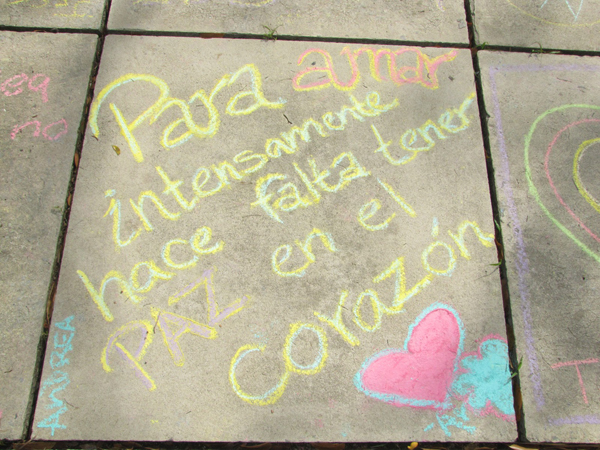 Para amar
intensamente
hace falta tener
PAZ en el
corazón
ANDREA
no